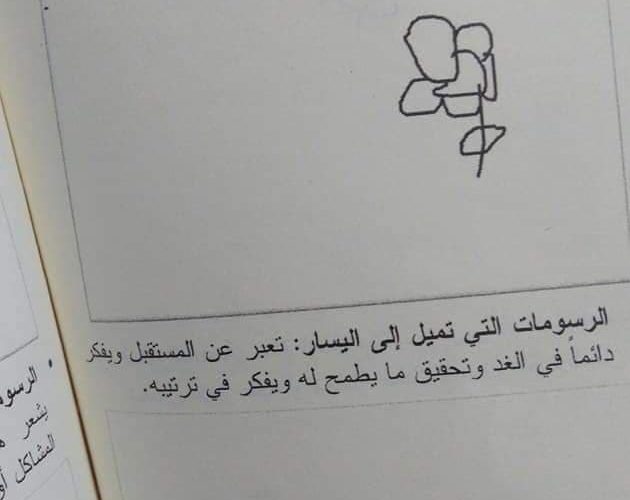 الرسومات التي تميل إلى اليسار: تعبر عن المستقبل ويفكر
دائماً في الغد وتحقيق ما يطمح له ويفكر في ترتيبه.
يشعر
المشاكل